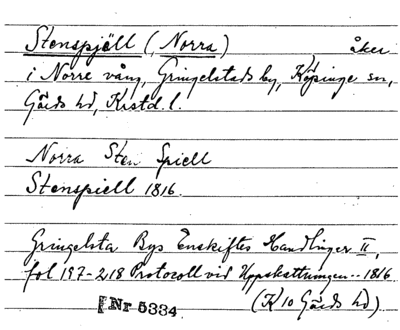 Stenspjäll (Norra) åker
i Norre vång, Gringelstads by, Köpinge sn,
Gärds hd, Kristd. l.
Norra Sten Spiell
Stenspiell 1816.
Gringelsta Bys Enskiftes Handlingar II,
fol 197-218 Protocoll vid Uppskattningen -- 1816.
(K 10 Gärds hd)
Nr 5334